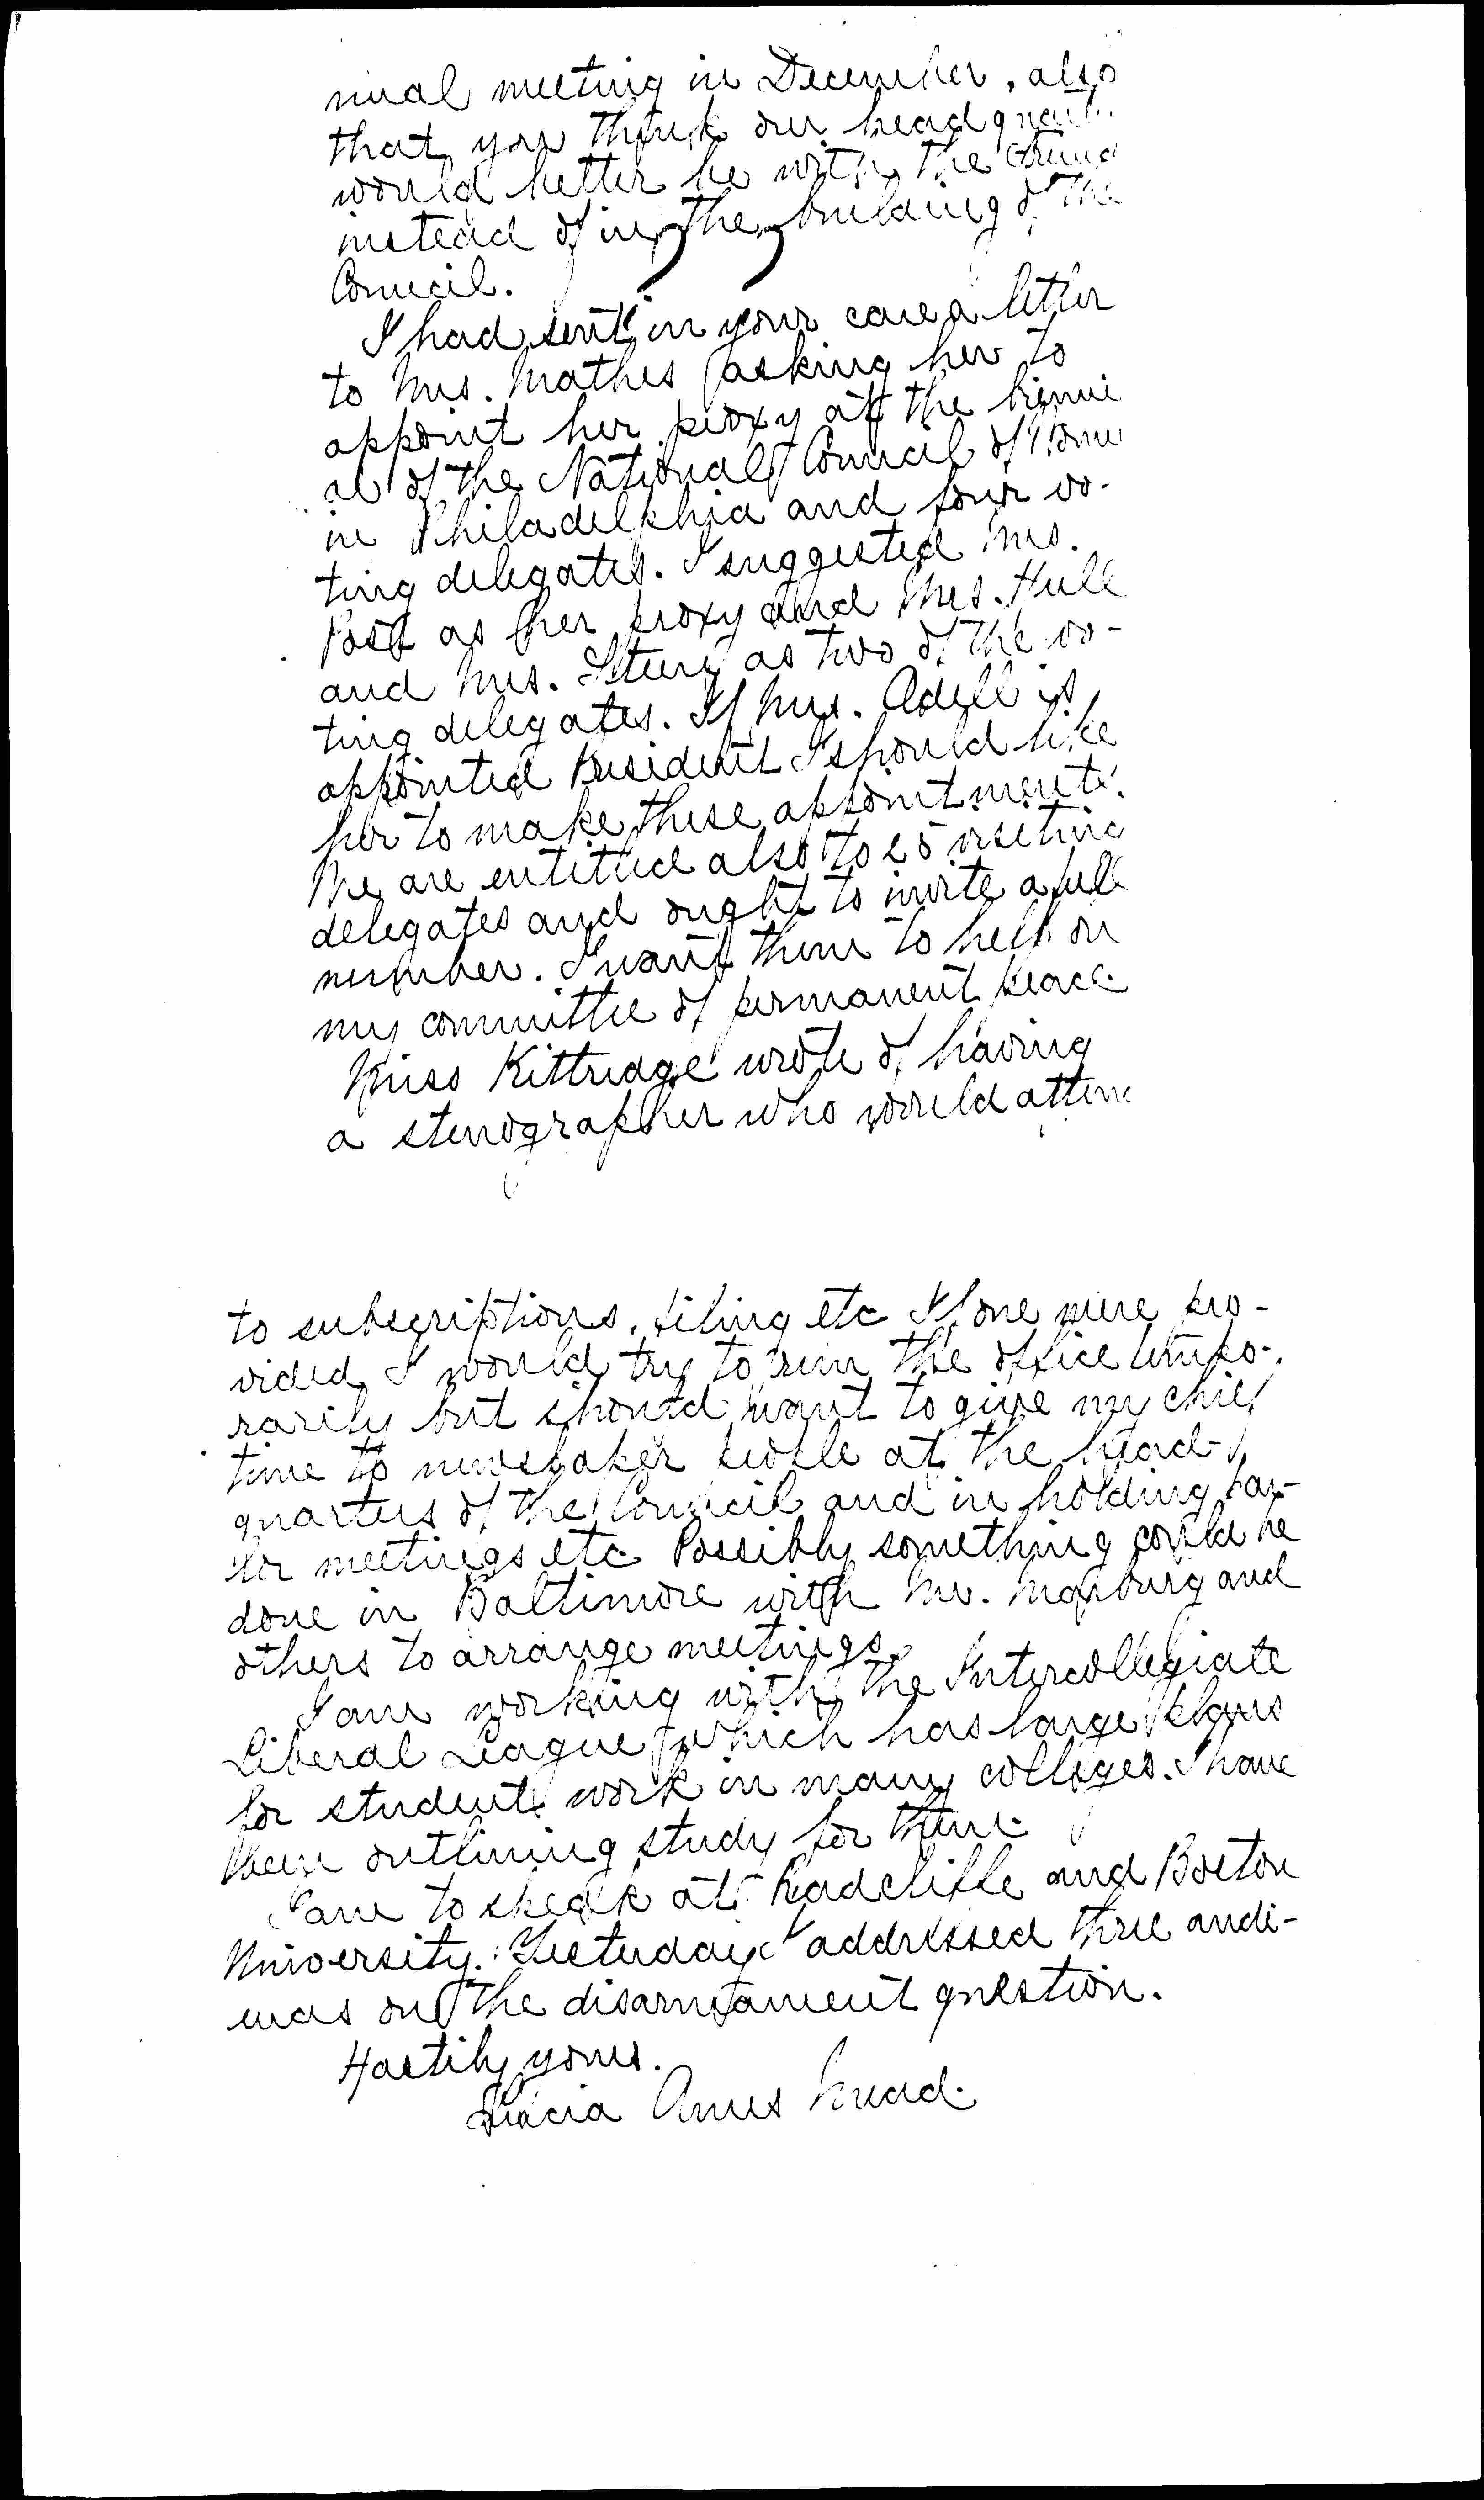 nual meeting in December, also
that you think our headquart
would better be with the
instead of in the building of the
Council.
I had sent in your care a letter
to Mrs. Mathes asking her to
appoint her proxy at the bienni
al of the National Council of Wome
in Philadelphia and four vo-
ting delegates. I suggested Mrs.
Post as her proxy and Mrs. Hull
and Mrs. as two of the vo-
ting delegates. If Mrs. Odell is
appointed President I should like
her to make these appointments.
We are entitled also to 25 visiting
delegates and ought to invite a full
number. I want them to help on
my committee of permanent peace.
Miss Kittredge wrote of having
a stenographer who would atten
to subscriptions, filing etc If one were pro-
vided I would try to run the office tempo-
rarily but should want to give my chief
time to newspaper people at the head-
quarters of the Council and in holding par-
lor meetings etc. Possibly something could be
done in Baltimore with Mr. Marburg and
others to arrange meetings.
I am working with the Intercollegiate
Liberal League which has large plans
for student work in many colleges. I have
been outlining study for them.
I am to speak at Radcliffe and Boston
University. Yesterday I addressed three audi-
ences on the disarmament question.
Hastily yours.
Lucia Ames Mead.